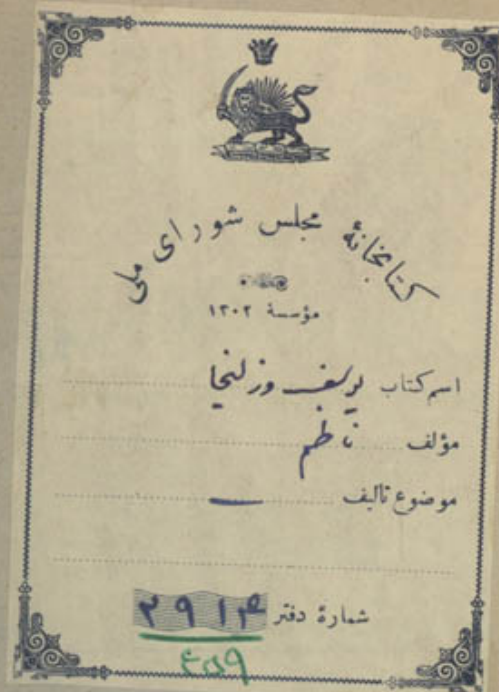 کتابخانهٔ مجلس شورای ملی
مؤسسهٔ ۱۳۰۲
اسم کتاب یوسف و زلیخا
مؤلف ناظم
موضوع تالیف
شمارهٔ دفتر ۲۹۱۴